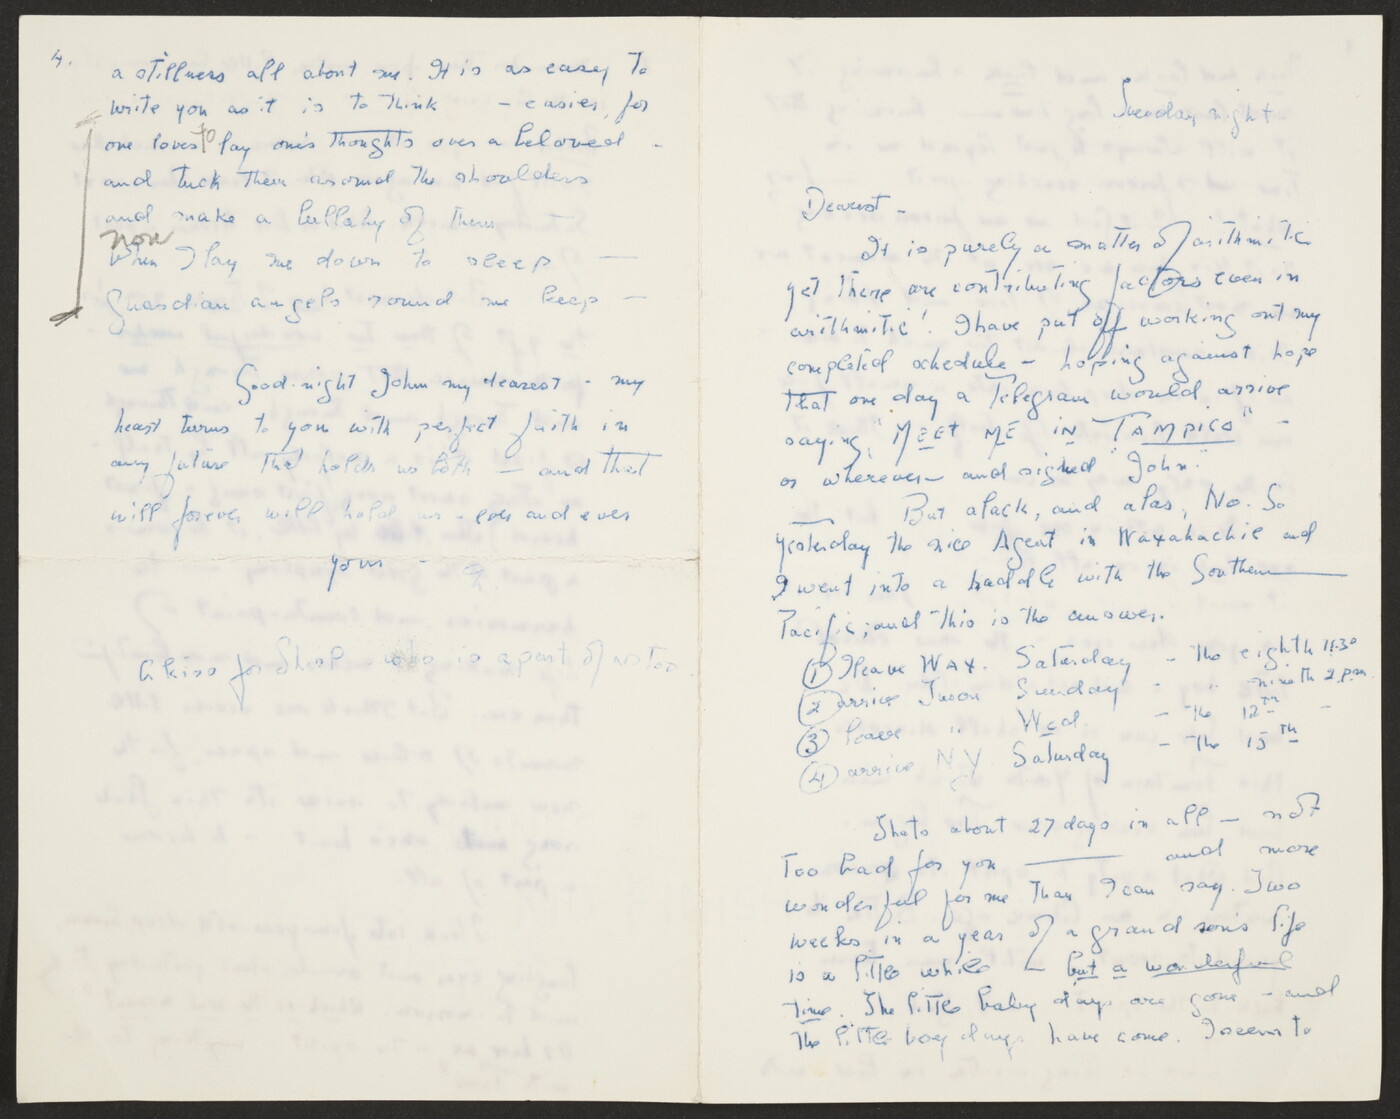 Tuesday night
Dearest -
It is purely a matter of arithmitic
yet there are contributing factors even in
arithmitic! I have put off working out my
completed schedule - hoping against hope
that one day a Telegram would arrive
saying "MEET ME IN TAMPICO" -
or wherever - and signed "John."
But alack, and alas, No. So
yesterday the nice Agent in Waxahachie and
I went into a huddle with the Southern
Pacific; and this is the answer.
① I leave WAX. Saturday - the eighth 11:30
② arrive Tucson Sunday - " ninth 2 p.m.
③ leave " Wed. - the 12th -
④ arrive N.Y. Saturday - the 15th
Thats about 27 days in all - not
too bad for you — and more
wonderful for me than I can say. Two
weeks in a year of a grand son's life
is a little while - but a wonderful
time. The little baby days are gone - and
the little boy days have come. I seem to
4.
a stillness all about me. It is as easy to
write you as it is to think - easier, for
one loves to lay one's thoughts over a beloved -
and tuck them around the shoulders
and make a lullaby of them
now
When I lay me down to sleep -
Guardian angels round me keep -
Good-night John my dearest - my
heart turns to you with perfect faith in
any future that holds us both - and that
will forever will hold us - ever and ever
yours -
A kiss for who is a part of us too.